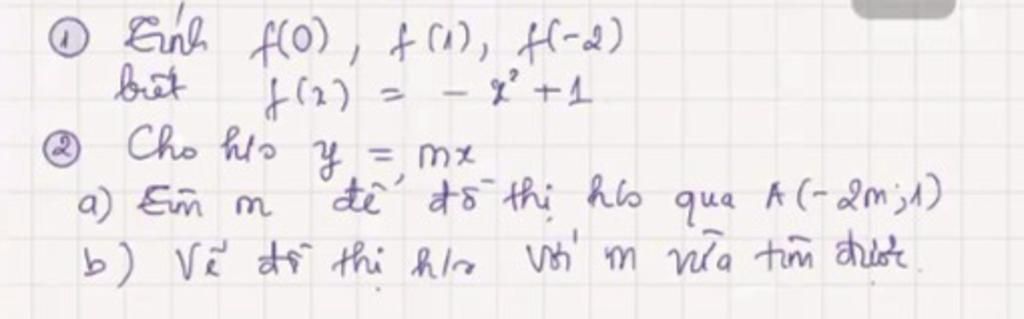 ① Tính f(0), f(1), f(-2)
biết f(x) = - x² + 1
② Cho h/s y = mx
a) Tìm m để đồ thị h/s qua A(-2m;1)
b) Vẽ đồ thị h/s với m vừa tìm được.